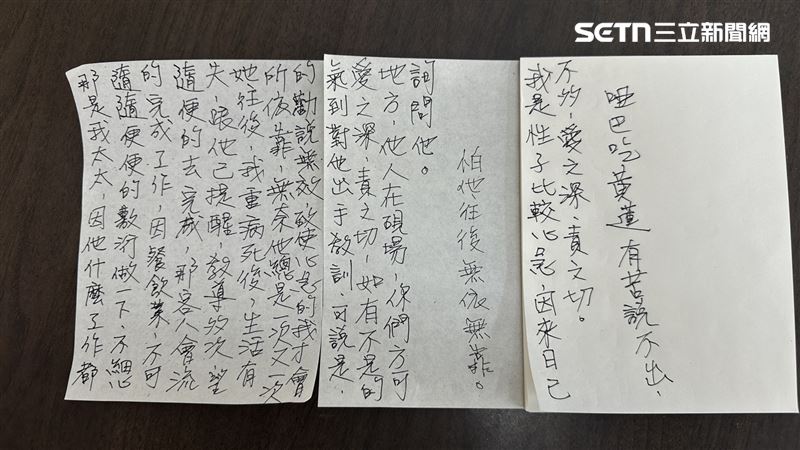 那是我太太,因他什麼工作都
隨隨便便的敷衍做下、不細心
的完成工作,因餐飲業,不可
隨便的去完成,那客人會流
失,跟他己提醒,教導多次,望
她往後,我重病死後,生活有
所依靠,無奈他總是一次又一次
的勸說無效,致使心急的我才會
氣到對他出手教訓、可說是、
愛之深、責之切,如有不是的
地方,他人在硯場,你們方可
詢問他。
怕他往後無依無靠。
我是性子比較心急,因來日己
不多,愛之深、責之切。
啞巴吃黃蓮有苦說不出,
SETN三立新聞網